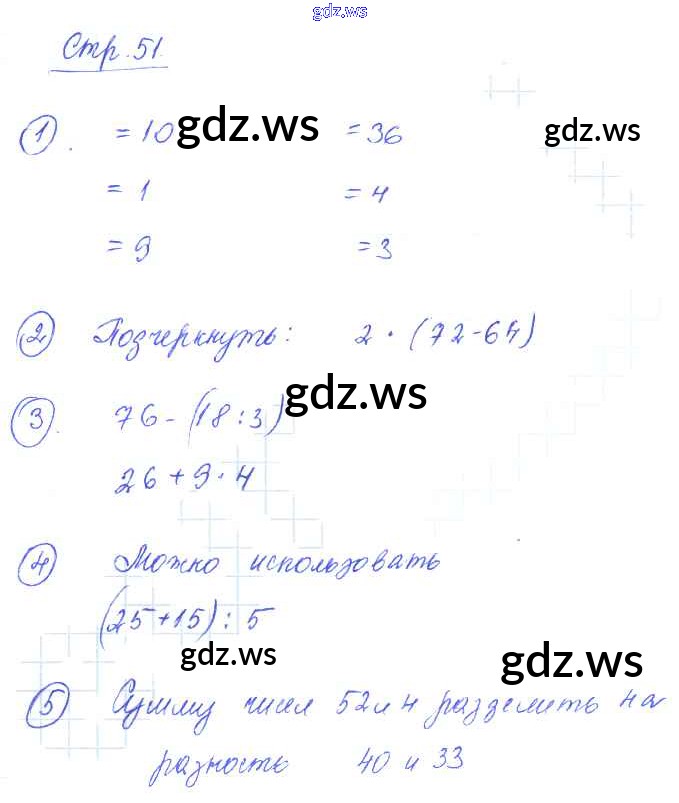 gdz.ws
Стр. 51.
1. = 10 gdz.ws = 36 gdz.ws
= 1 = 4
= 9 = 3
2 Подчеркнуть: 2 · (72-64)
gdz.ws
3. 76 - (18 : 3)
26 + 9 · 4
4 Можно использовать
(25+15) : 5
gdz.ws gdz.ws
5 Сумму чисел 52 и 4 разделить на
разность 40 и 33